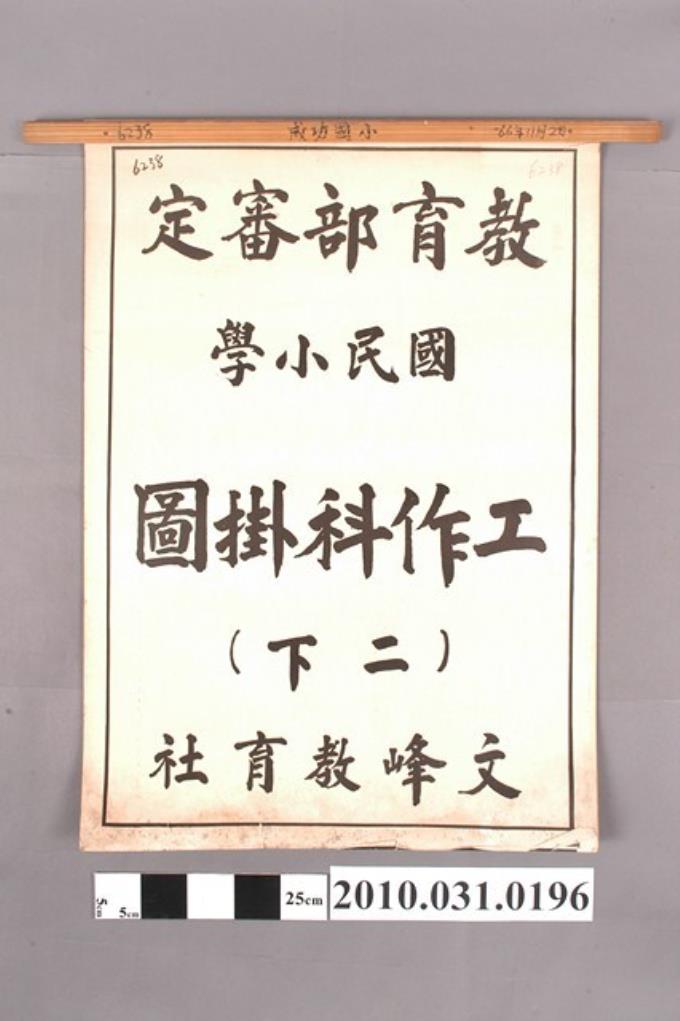 6238 成功國小 66年11月2日
6238 6238
教育部審定
國民小學
工作科掛圖
(二下)
文峰教育社
5cm 5cm 25cm 2010.031.0196